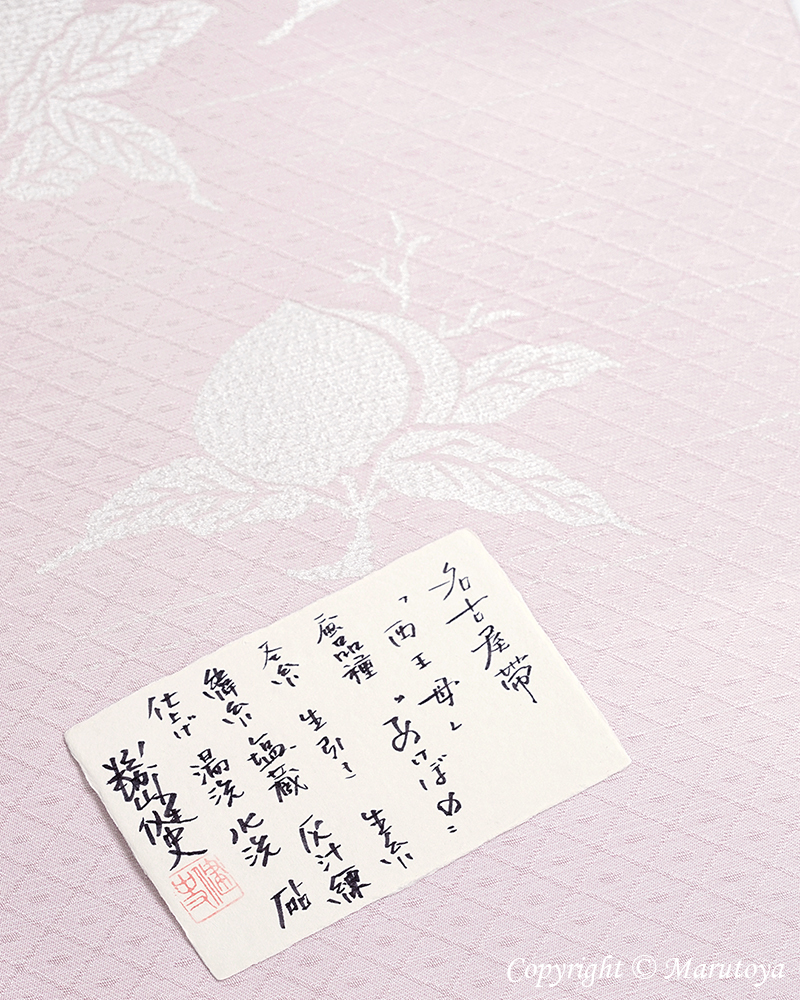 名古屋帯
〝西王母〟
蚕品種 あけぼの
圣糸 生引き 生糸
緯糸 塩蔵 灰汁練
仕上げ 湯洗 水洗 砧
勝山健史
Copyright © Marutoya